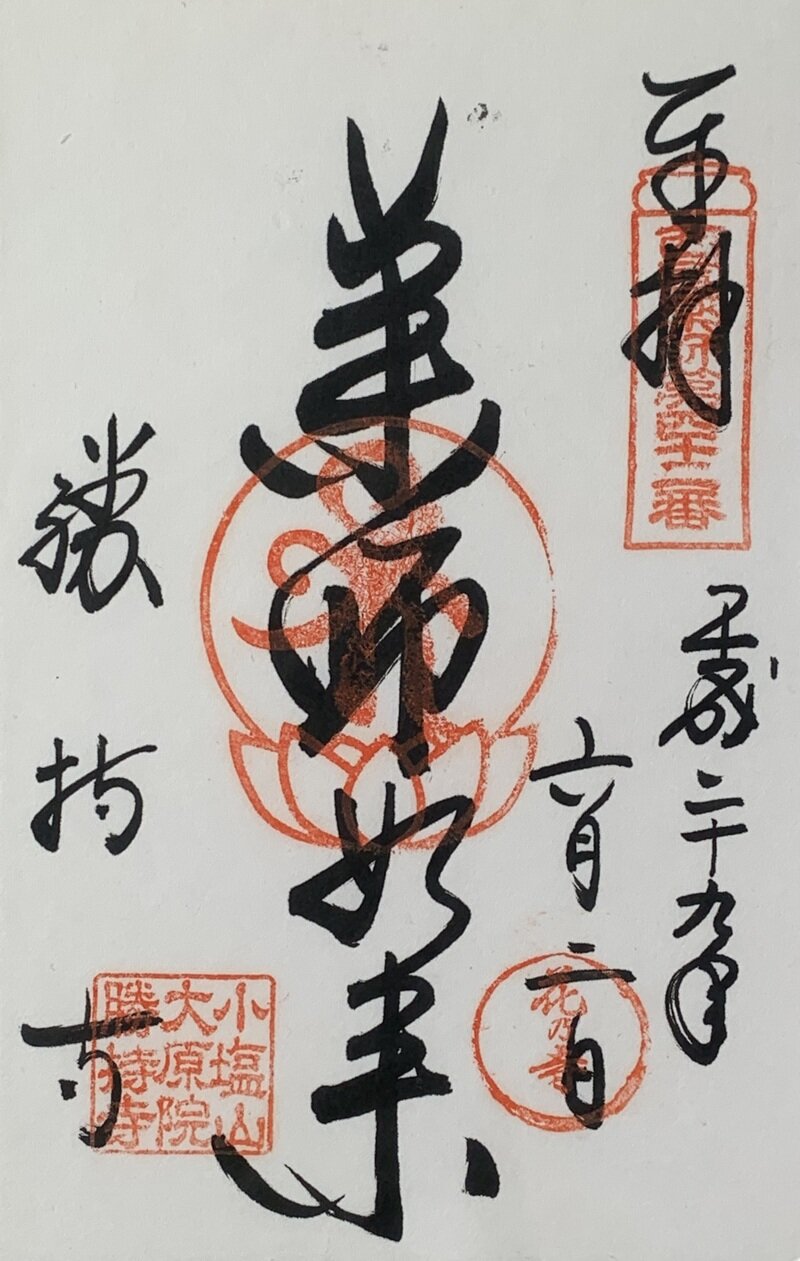 奉拝
第四十二番
平成二十九年
六月二日
花乃寺
薬師如来
勝持寺
小塩山
大原院
勝持寺